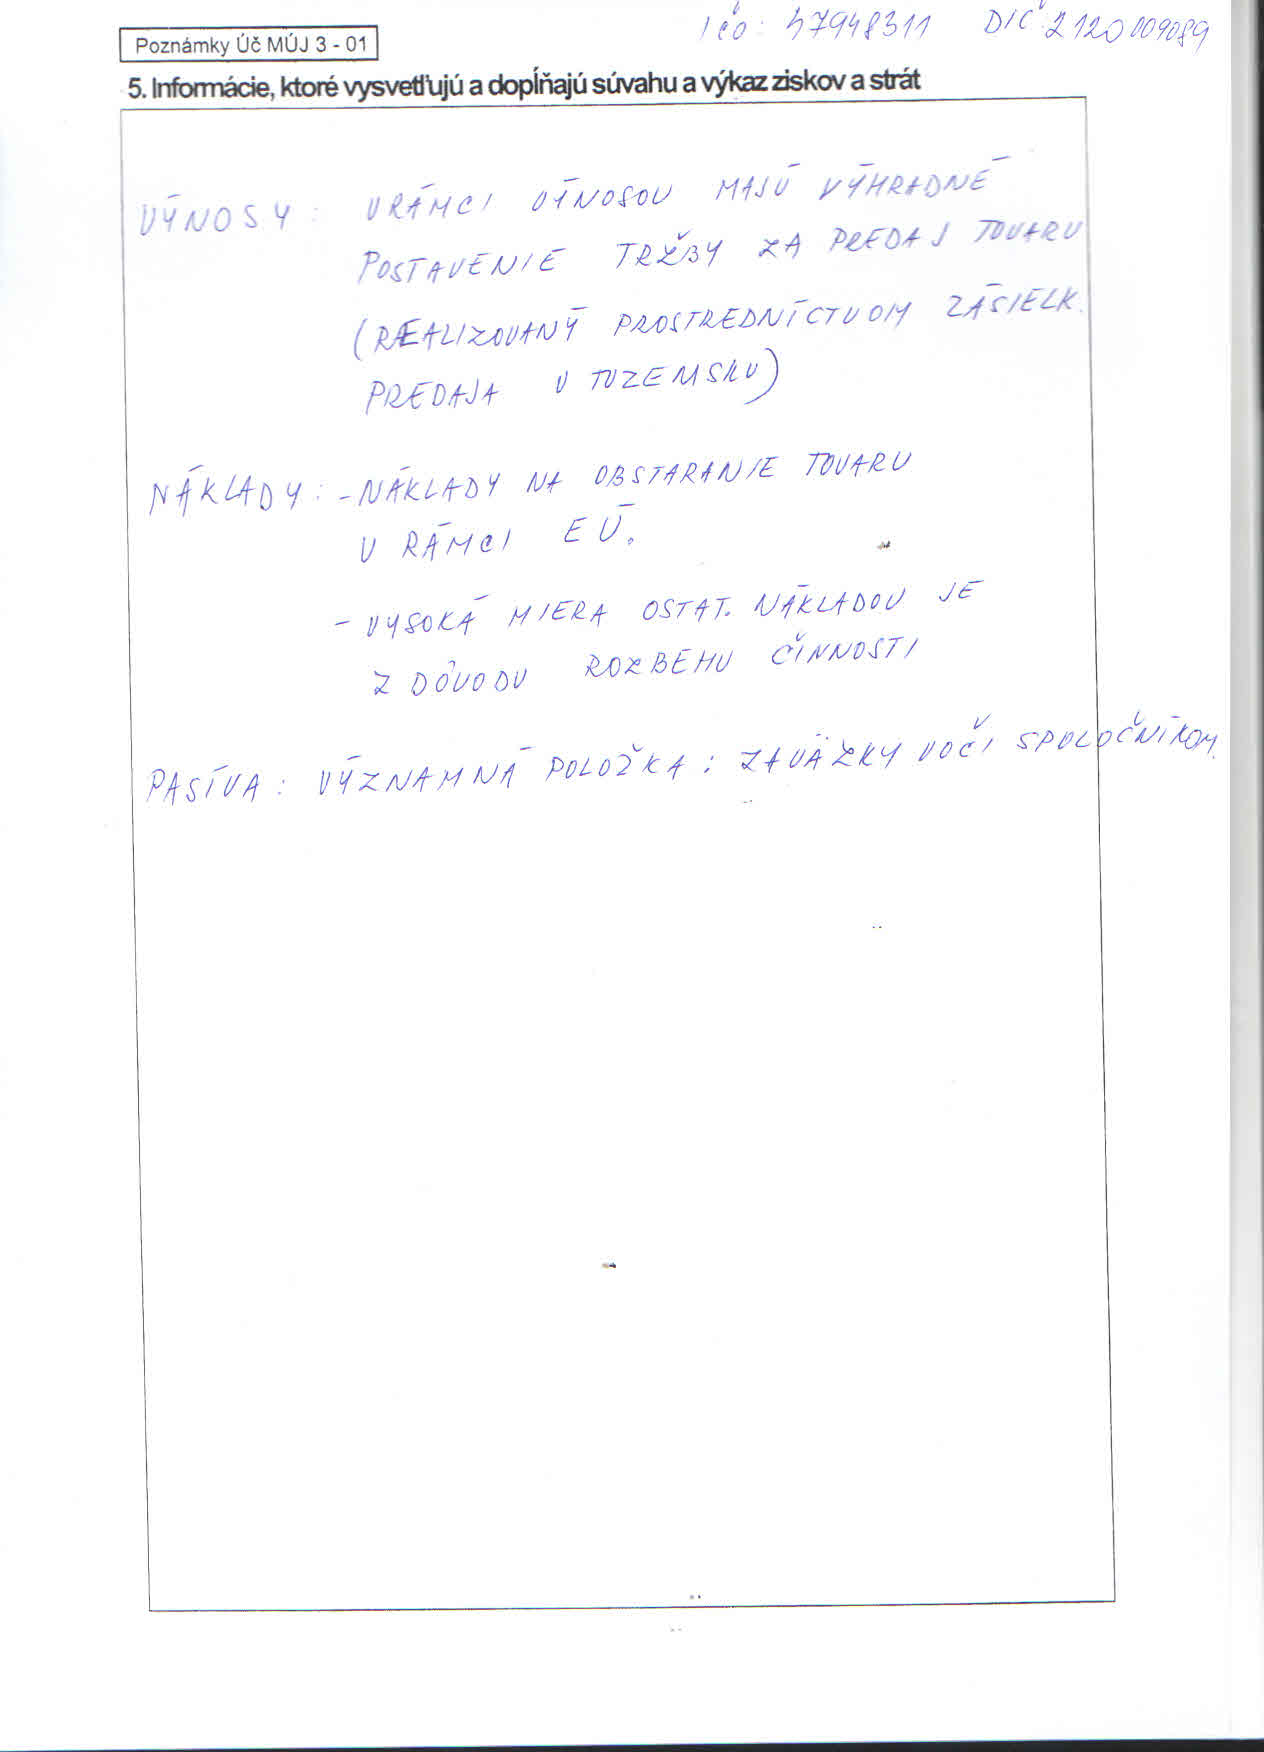 IČO: 47948311 DIČ: 2120009089
Poznámky Úč MÚJ 3 - 01
5. Informácie, ktoré vysvetľujú a dopĺňajú súvahu a výkaz ziskov a strát
VÝNOSY: V RÁMCI VÝNOSOV MAJÚ VÝHRADNÉ
POSTAVENIE TRŽBY ZA PREDAJ TOVARU
(REALIZOVANÝ PROSTREDNÍCTVOM ZÁSIELK.
PREDAJA V TUZEMSKU)
NÁKLADY: - NÁKLADY NA OBSTARANIE TOVARU
V RÁMCI EÚ.
- VYSOKÁ MIERA OSTAT. NÁKLADOV JE
Z DÔVODU ROZBEHU ČINNOSTI
PASÍVA: VÝZNAMNÁ POLOŽKA: ZÁVÄZKY VOČI SPOLOČNÍKOM.